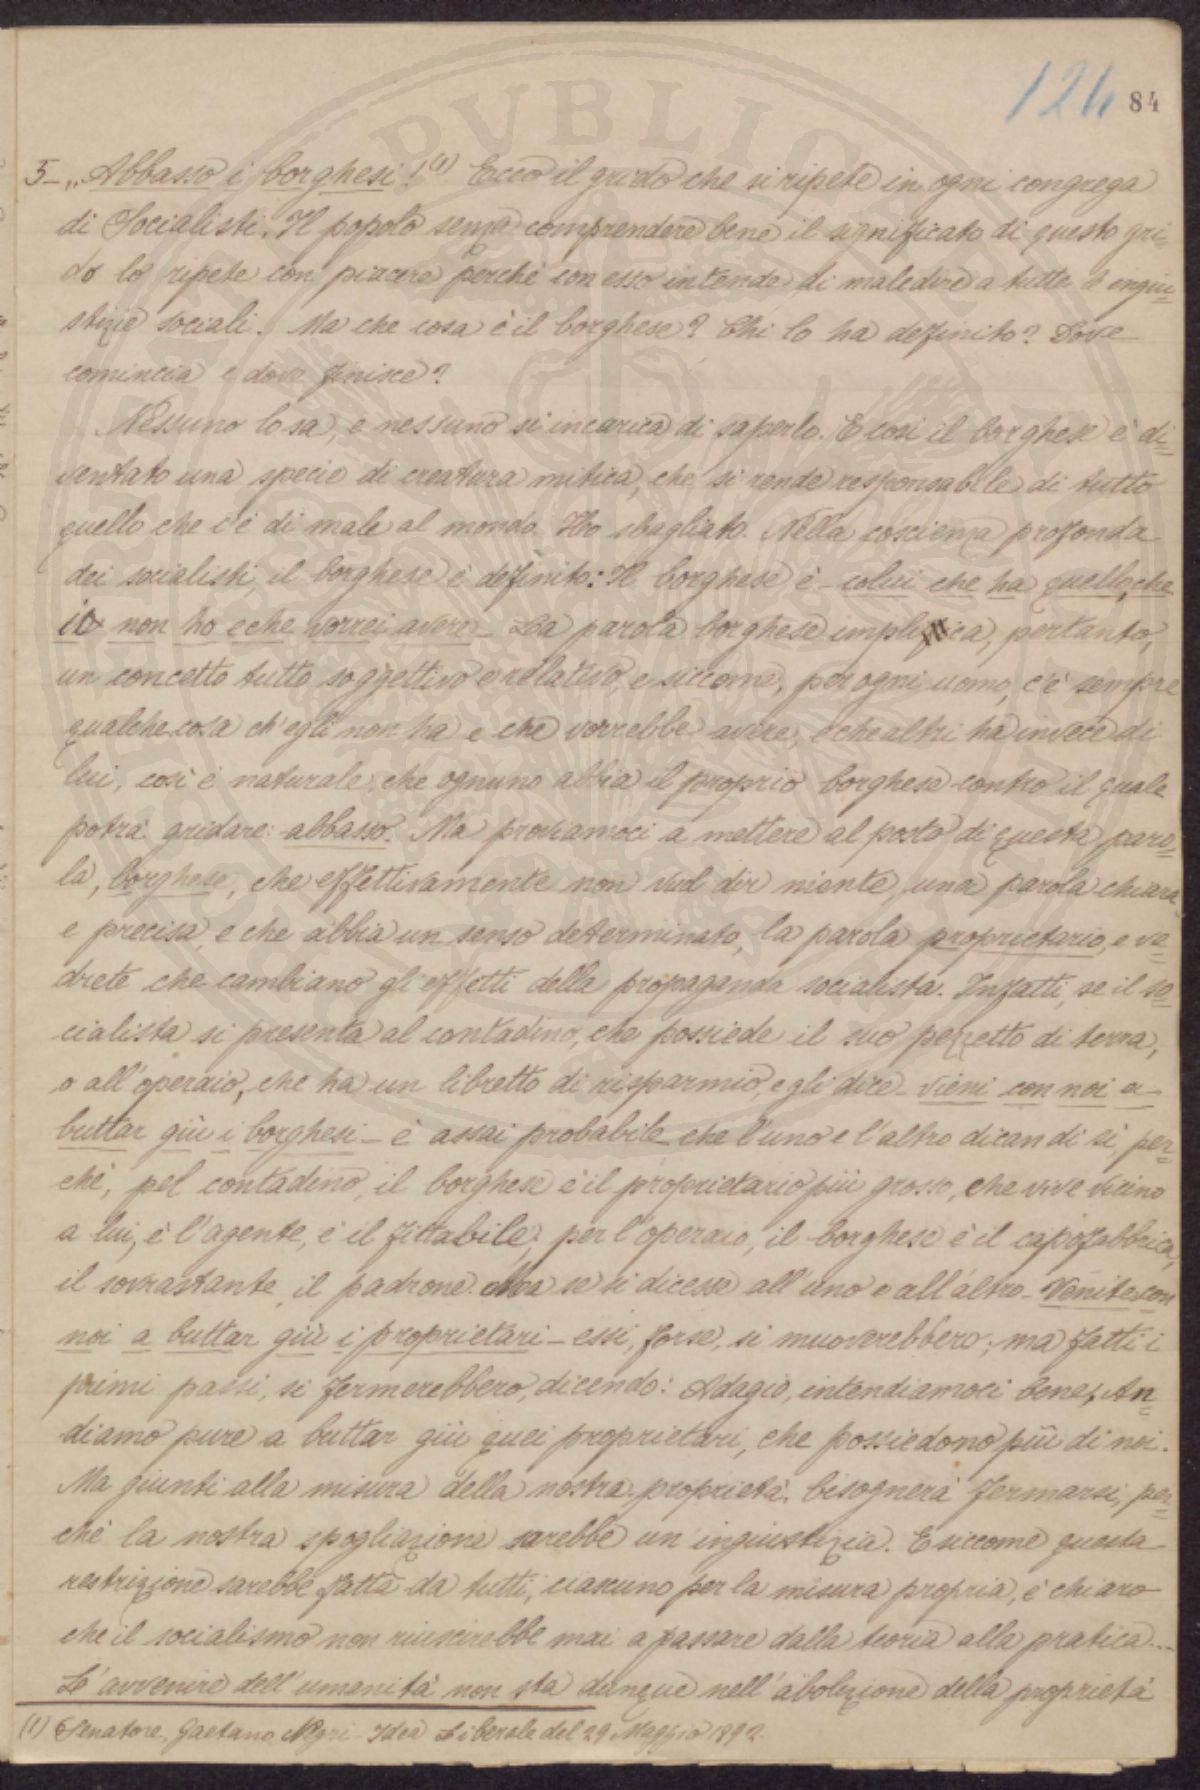 124 84
5_ „Abbasso i borghesi!(1) Ecco il grido che si ripete in ogni congrega
di Socialisti. Il popolo senza comprendere bene il significato di questo gri=
do lo ripete con piacere perchè con esso intende di maledire a tutte le ingiu=
stizie sociali. Ma che cosa è il borghese? Chi lo ha definito? Dove
comincia e dove finisce?
Nessuno lo sa, e nessuno si incarica di saperlo. E così il borghese è di=
ventato una specie di creatura mitica, che si rende responsabile di tutto
quello che c'è di male al mondo. Ho sbagliato. Nella coscienza profonda
dei socialisti, il borghese è definito: Il borghese è _ colui che ha quello, che
io non ho e che vorrei avere _ La parola borghese implica, pertanto,
un concetto tutto soggettivo e relativo, e siccome, per ogni uomo, c'è sempre
qualche cosa ch'egli non ha e che vorrebbe avere, e che altri ha invece di
lui, così è naturale, che ognuno abbia il proprio borghese contro il quale
potrà gridare: abbasso. Ma proviamoci a mettere al posto di questa paro=
la, borghese, che effettivamente non vuol dir niente, una parola chiara
e precisa, e che abbia un senso determinato, la parola proprietario, e ve=
drete che cambiano gli effetti della propaganda socialista. Infatti, se il so=
cialista si presenta al contadino, che possiede il suo pezzetto di terra,
o all'operaio, che ha un libretto di risparmio, e gli dice _ vieni con noi a
buttar giù i borghesi _ è assai probabile che l'uno e l'altro dican di sì, per=
chè, pel contadino, il borghese è il proprietario più grosso, che vive vicino
a lui, è l'agente, è il fittabile; per l'operaio, il borghese è il capofabbrica,
il sovrastante, il padrone. Ma se si dicesse all'uno e all'altro _ Venite con
noi a buttar giù i proprietari _ essi, forse, si muoverebbero; ma fatti i
primi passi, si fermerebbero, dicendo: Adagio, intendiamoci bene, An=
diamo pure a buttar giù quei proprietari, che possiedono più di noi.
Ma giunti alla misura della nostra proprietà, bisognerà fermarsi, per=
chè la nostra spogliazione sarebbe un'ingiustizia. E siccome questa
restrizione sarebbe fatta da tutti, ciascuno per la misura propria, è chiaro
che il socialismo non riuscirebbe mai a passare dalla teoria alla pratica....
L'avvenire dell'umanità non sta dunque nell'abolizione della proprietà
(1) Senatore Gaetano Negri _ Idea Liberale del 29 Maggio 1892.
PVBLICO